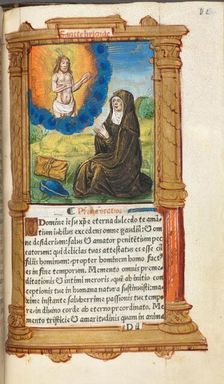 Sancte brigide
Prima oratio
O Domine iesu xp̄e eterna dulcedo te ama
tium iubilus excedens omne gaudiū: ⁊ om
ne desideriū: salus ⁊ amator penitētiū pec
catorum: qui delicias tuas testatus es esse cū
filiis hominum: propter hominem homo fact⁹
in fine temporum. Memento omnis preme
ditationis ⁊ intimi meroris
maxime instante saluberrime passionis tue tempo
re in diuino corde ab eterno preordinato. Me
mento tristicie ⁊ amaritudinis quam in anima